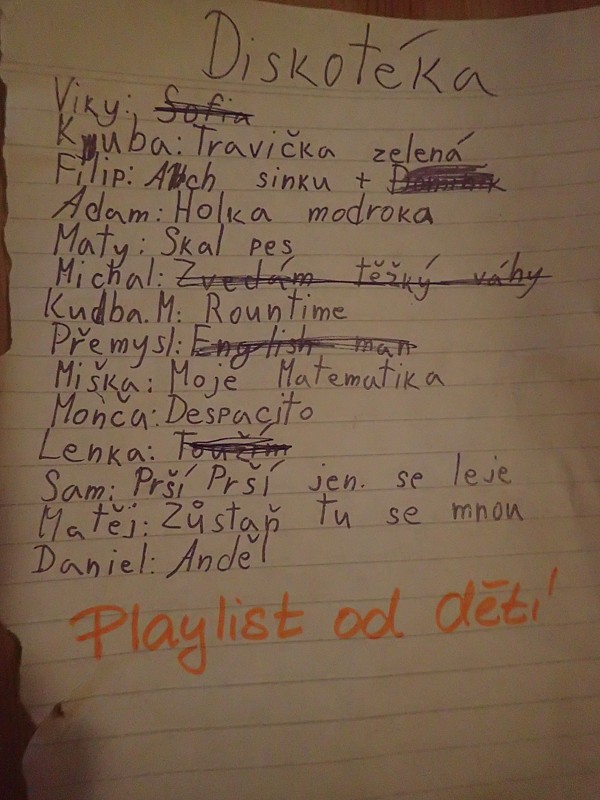 Diskotéka
Viky: Sofia
Kuba: Travička zelená
Filip: Ach sinku +
Adam: Holka modroka
Maty: Skal pes
Michal: Zvedám těžký váhy
Kudba.M: Rountime
Přemysl: English man
Miška: Moje Matematika
Monča: Despacito
Lenka: Toužím
Sam: Prší Prší jen. se leje
Matěj: Zůstaň tu se mnou
Daniel: Anděl
Playlist od dětí